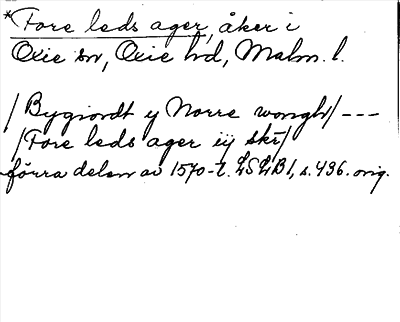 *Fore leds ager, åker i
Oxie sn, Oxie hd, Malm. l.
/Bygiordt y Norre wongh/ ---
/Fore leds ager iij skr/
förra delen av 1570-t. LSLB1, s. 496. orig.